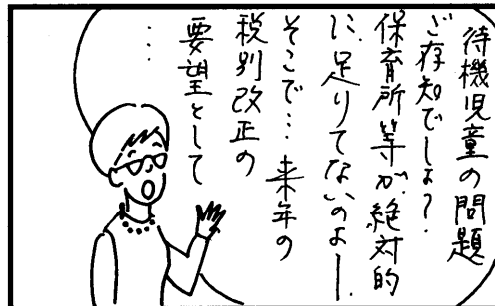 待機児童の問題
ご存知でしょ？
保育所等が絶対的
に足りてないのよー。
そこで…来年の
税別改正の
要望として
…